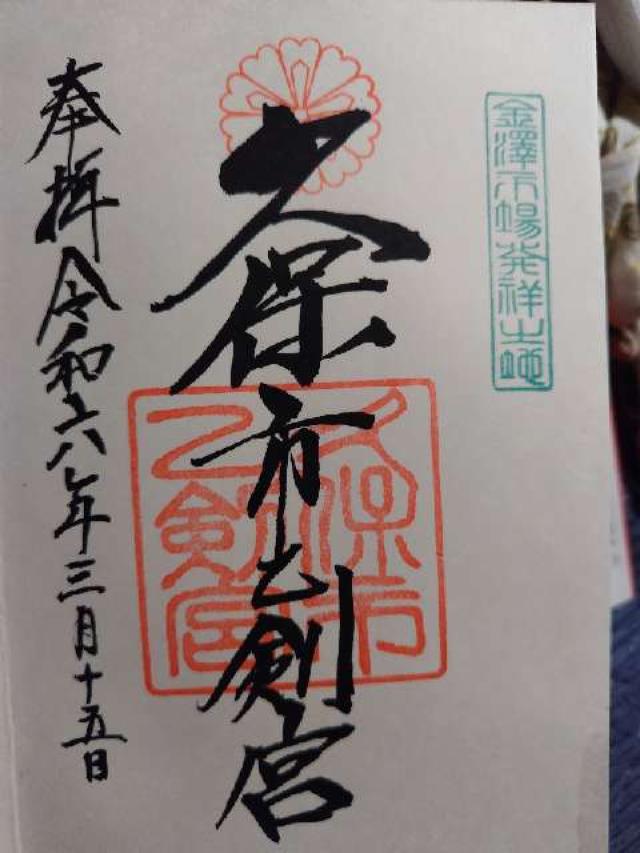 金澤市場発祥之地
久保市乙剣宮
久保市
乙剣宮
奉拝 令和六年三月十五日